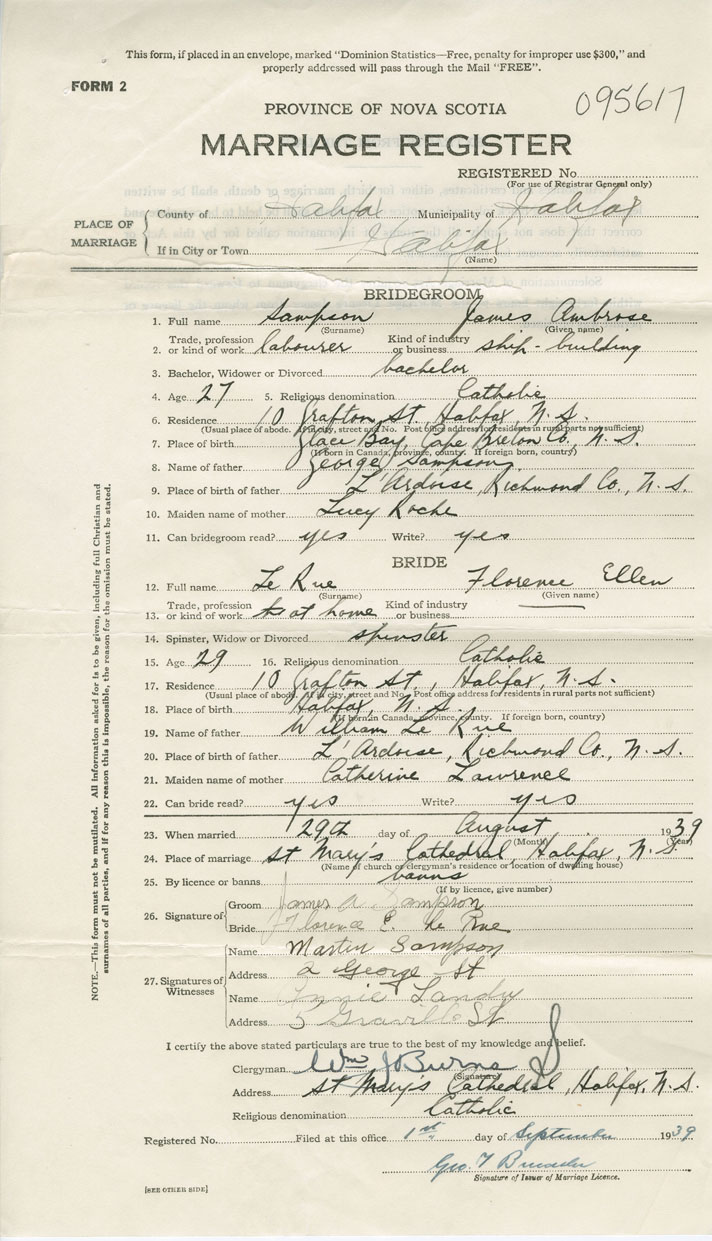 This form, if placed in an envelope, marked "Dominion Statistics—Free, penalty for improper use $300," and
properly addressed will pass through the Mail "FREE".
FORM 2
095617
PROVINCE OF NOVA SCOTIA
MARRIAGE REGISTER
REGISTERED No.
(For use of Registrar General only)
PLACE OF MARRIAGE
County of Halifax Municipality of Halifax
If in City or Town Halifax
(Name)
BRIDEGROOM
1. Full name Sampson James Ambrose
(Surname) (Given name)
2. Trade, profession or kind of work labourer Kind of industry or business ship-building
3. Bachelor, Widower or Divorced bachelor
4. Age 27 5. Religious denomination Catholic
6. Residence 10 Grafton St, Halifax N.S.
(Usual place of abode. If in city, street and No. Post office address for residents in rural parts not sufficient)
7. Place of birth Glace Bay, Cape Breton Co., N.S.
(If born in Canada, province, county. If foreign born, country)
8. Name of father George Sampson
9. Place of birth of father L'Ardoise, Richmond Co., N.S.
10. Maiden name of mother Lucy Roche
11. Can bridegroom read? yes Write? yes
BRIDE
12. Full name Le Rue Florence Ellen
(Surname) (Given name)
13. Trade, profession or kind of work at home Kind of industry or business
14. Spinster, Widow or Divorced spinster
15. Age 29 16. Religious denomination Catholic
17. Residence 10 Grafton St., Halifax, N.S.
(Usual place of abode. If in city, street and No. Post office address for residents in rural parts not sufficient)
18. Place of birth Halifax, N.S.
(If born in Canada, province, county. If foreign born, country)
19. Name of father William Le Rue
20. Place of birth of father L'Ardoise, Richmond Co., N.S.
21. Maiden name of mother Catherine Lawrence
22. Can bride read? yes Write? yes
23. When married 29th day of August 1939
(Month) (Year)
24. Place of marriage St Mary's Cathedral, Halifax, N.S.
(Name of church or clergyman's residence or location of dwelling house)
25. By licence or banns banns
(If by licence, give number)
26. Signature of
Groom James A. Sampson
Bride Florence E. Le Rue
27. Signatures of Witnesses
Name Martin Sampson
Address 2 George St
Name Annie Landry
Address 5 St
I certify the above stated particulars are true to the best of my knowledge and belief.
Clergyman Wm J Burns
(Signature)
Address St Mary's Cathedral, Halifax, N.S.
Religious denomination Catholic
Registered No. Filed at this office 1st day of September 1939
Geo. T
Signature of Issuer of Marriage Licence.
[SEE OTHER SIDE]
NOTE.—This form must not be mutilated. All information asked for is to be given, including full Christian and
surnames of all parties, and if for any reason this is impossible, the reason for the omission must be stated.